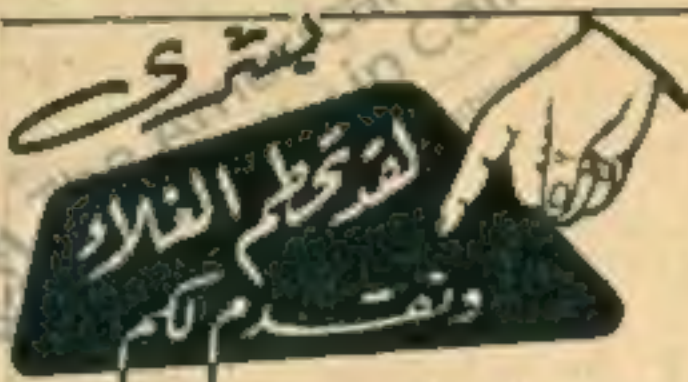 بشرى
لقد تحطم الغلاء
ونقدم لكم